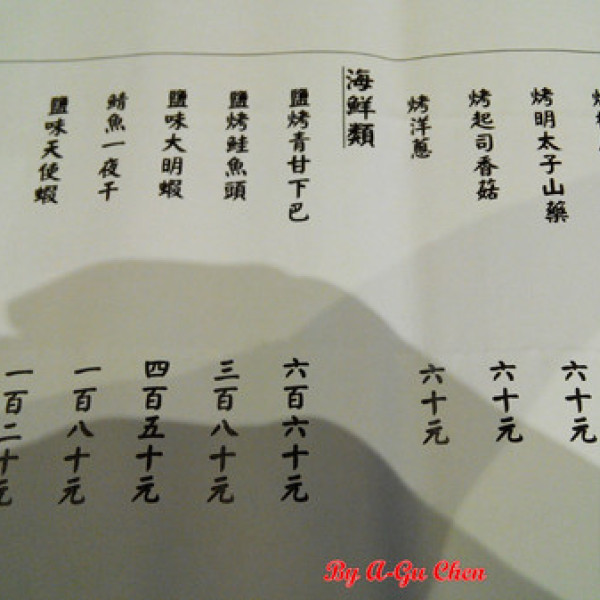 烤明太子山藥
六十元
烤起司香菇
六十元
烤洋蔥
六十元
海鮮類
鹽烤青甘下巴
六百六十元
鹽烤鮭魚頭
三百八十元
鹽味大明蝦
四百五十元
鯖魚一夜干
一百八十元
鹽味天使蝦
一百二十元
By A-Gu Chen